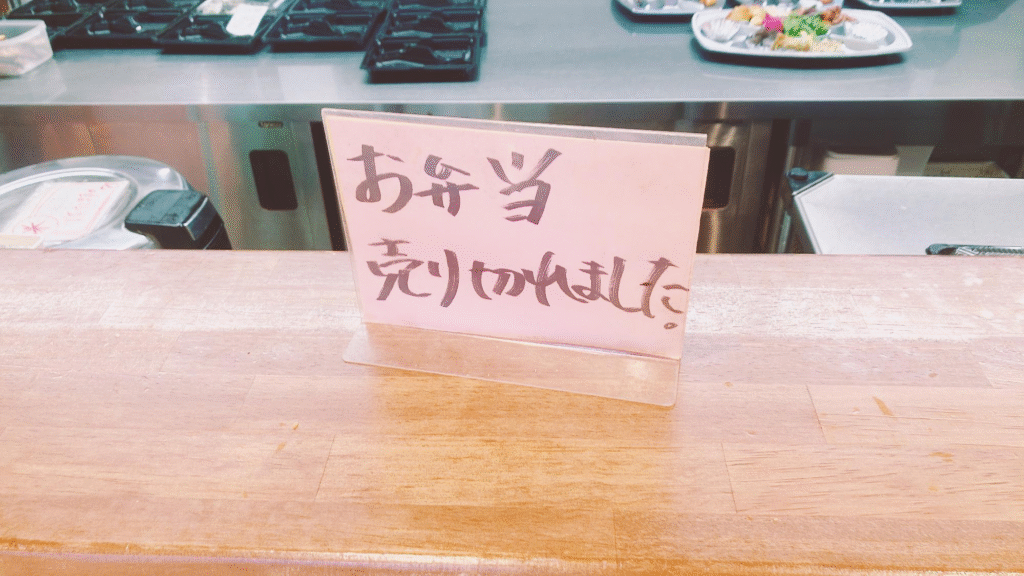 お弁当
売り切れました。